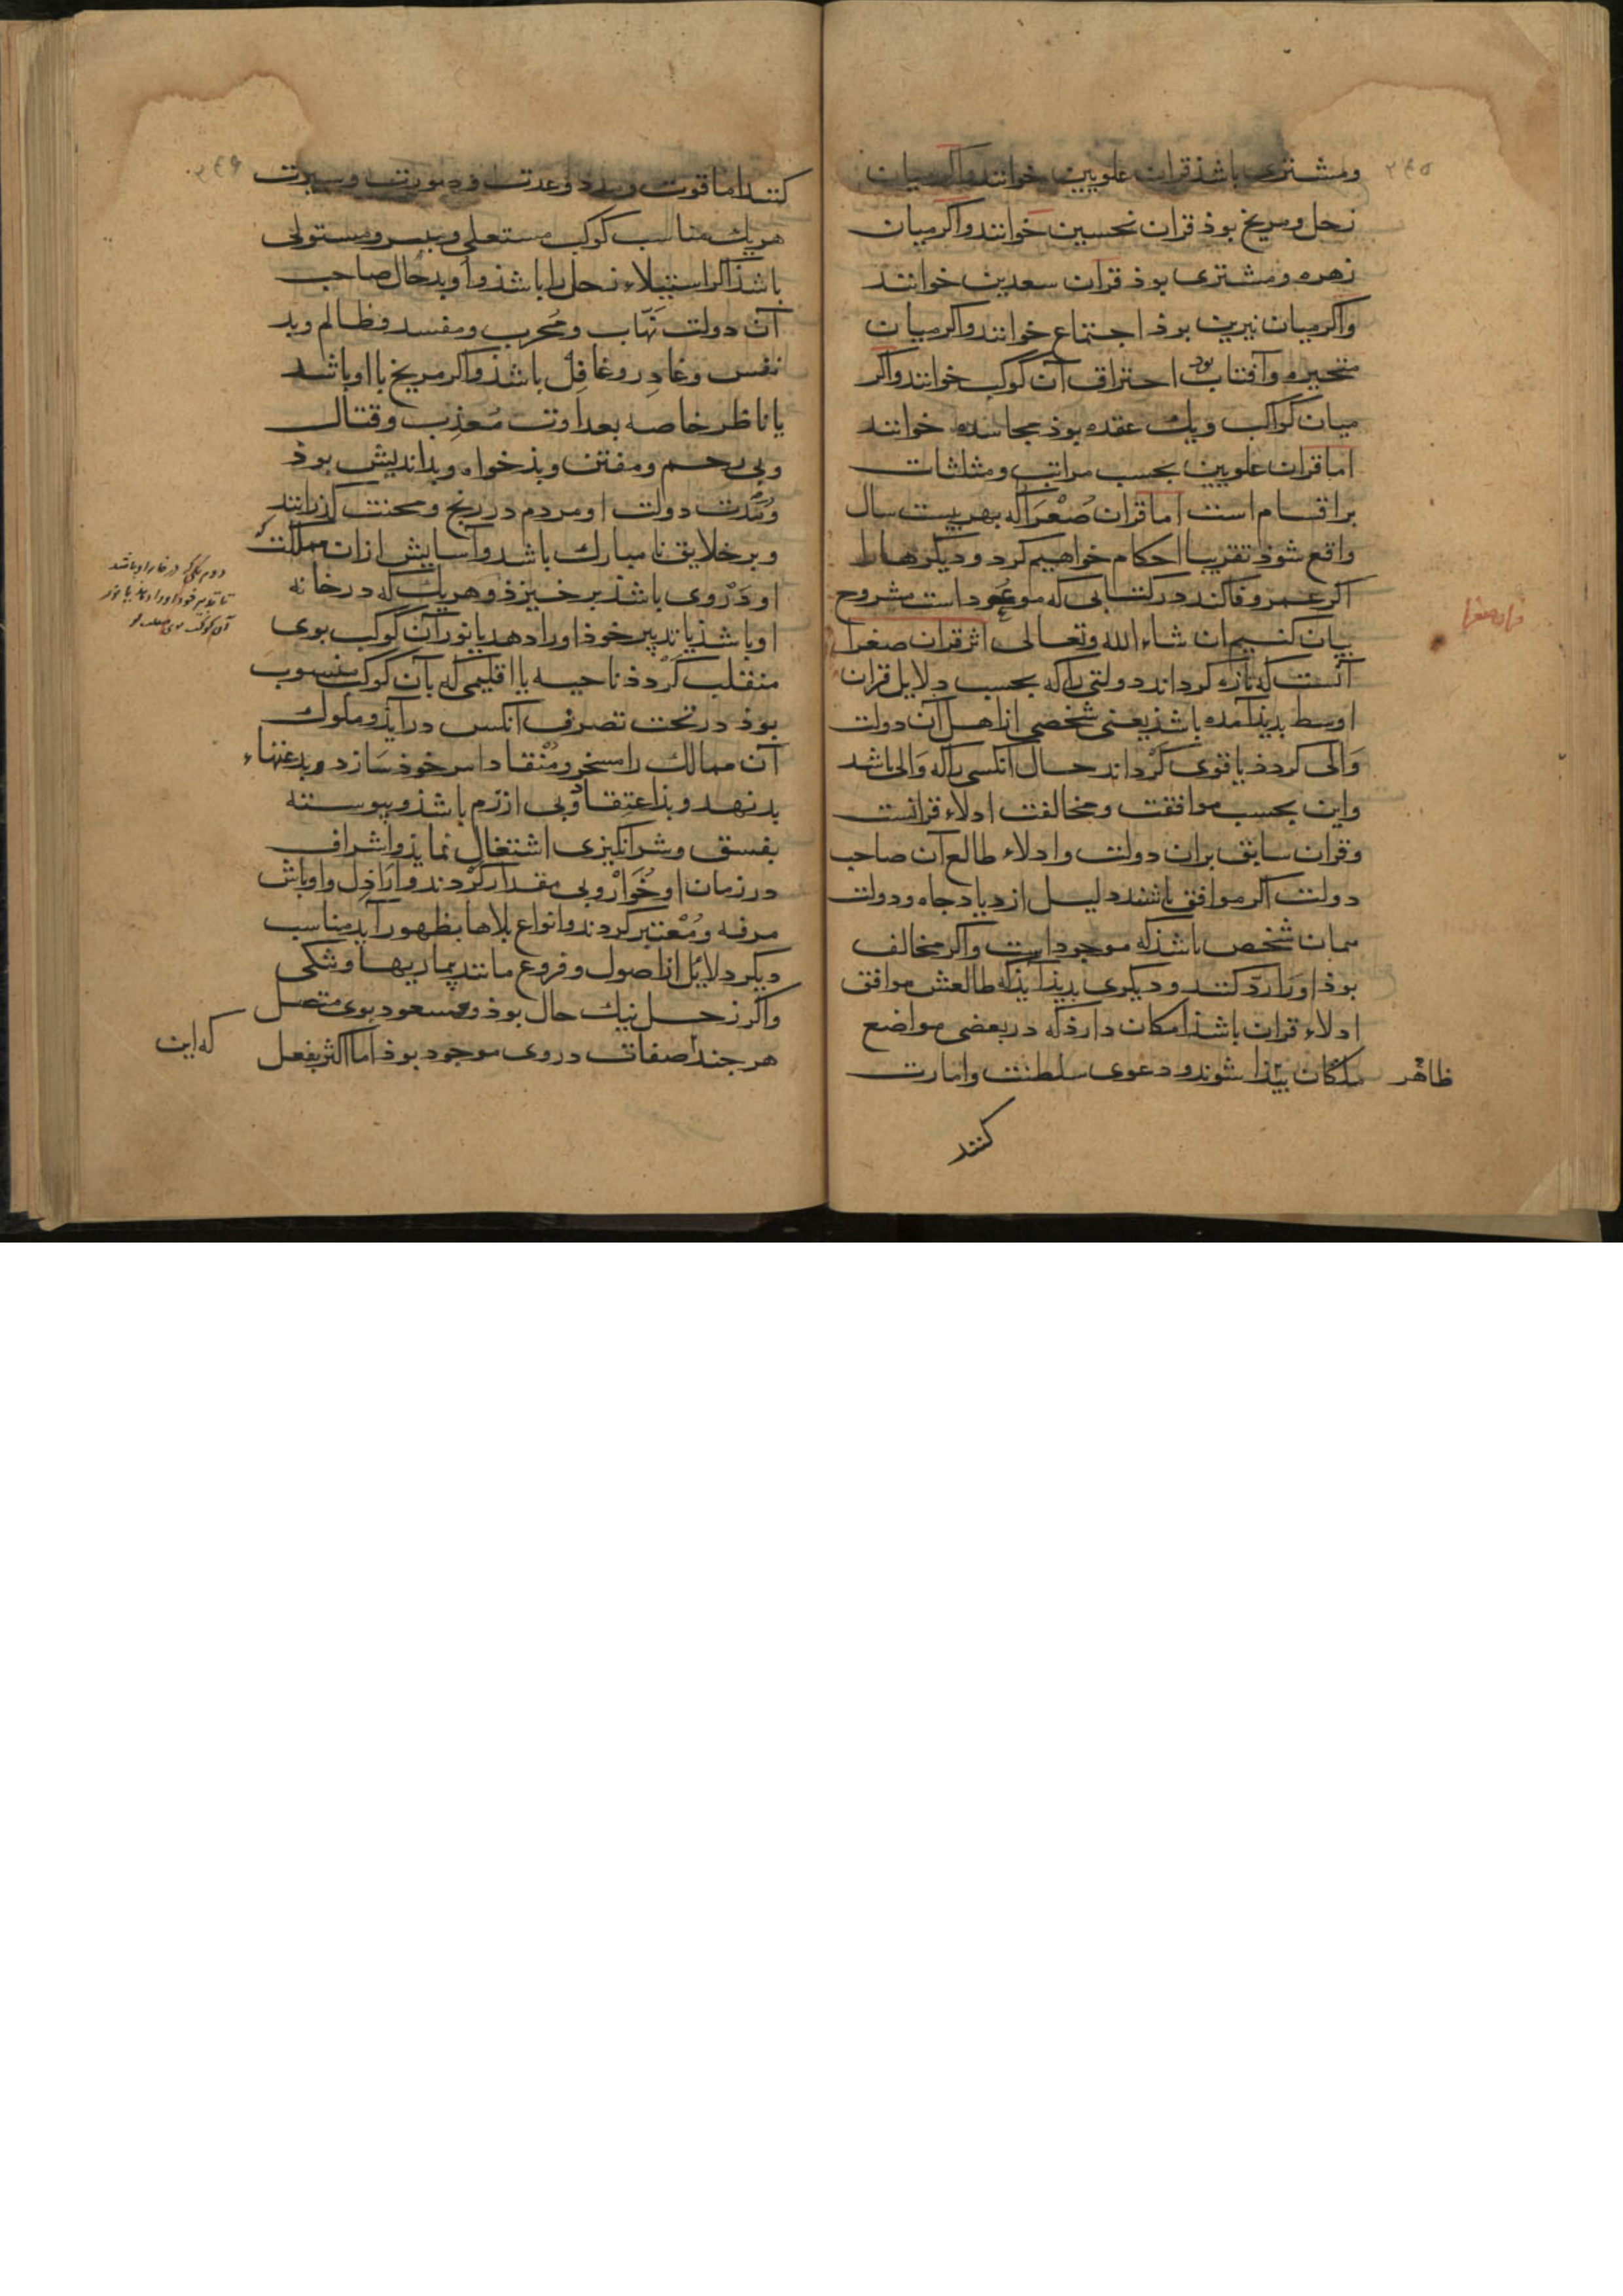 ومشتری باشذ قران علویین خوانند واکر میان
زحل ومریخ بوذ قران نحسین خوانند واکر میان
زهره ومشتری بوذ قران سعدین خوانند
واکر میان نیرین بوذ اجتماع خوانند واکر میان
متحیره وآفتاب بود احتراق آن کوکب خوانند واکر
میان کواکب ویك عقده بوذ مجاسده خوانند
اما قران علویین بحسب مراتب ومثلثات
بر اقسام است اما قران صُغْرَا که بهر بیست سال
واقع شوذ تقریبا احکام خواهیم کرد ودیکرها را
اکر عمر وفا کند در کتابی که موعود است مشروح
بیان کنیم ان شاء الله وتعالی اثر قران صغرا
آنست که تازه کرداند دولتی را که بحسب دلایل قران
اوسط بدیذ آمده باشذ یعنی شخصی از اهل آن دولت
وَالی کردذ یا قوی کَرْداند حال آنکسی را که وَالی باشد
واین بحسب موافقت ومخالفت ادلاء قرانست
وقران سابق بران دولت وادلاء طالع آن صاحب
دولت اکر موافق باشند دلیل ازدیاد جاه ودولت
همان شخص باشذ که موجود است واکر مخالف
بوذ اورا ردّ کنند ودیکری بدیذ آیذ که طالعش موافق
ادلاء قران باشذ امکان دارذ که در بعضی مواضع
ظاهر
ملکان بیذا شوند ودعوی سلطنت وامارت
کنند
قران صغرا
۳۴۵
۳۴۶
کنند اما قوت ومدد وعدت وصورت وسیرت
هریك مناسب کوکب مستعلی ومبتز ومستولی
باشذ اکر استیلاء زحل را باشذ واو بدحال صاحب
آن دولت نَهّاب ومُخرب ومفسد وظالم وبد
نفس وغادِر وغافِل باشذ واکر مریخ با او باشد
یا ناظر خاصه بعداوت مُعذِب وقتال
وبی رحم ومفتن وبذخواه وبداندیش بوذ
ومُدّت دولت او مردم در رنج ومحنت کذرانند
وبر خلایق نا مبارك باشد وآسایش ازان مملکت
او دَرْوی باشذ بر خیزذ وهریك که در خانه
او باشذ یا تدبیر خوذ اورا دهد یا نور آن کوکب بوی
منقلب کَرْدذ ناحیه یا اقلیمی که بآن کوکب منسوب
بوذ در تحت تصرف آنکس درآیذ وملوك
آن ممالك را مسخر ومُنْقاد امر خوذ سَازد وبدعتهاء
بد نهد وبذ اعتقاد وبی ازرم باشذ وپیوسته
بفسق وشر انکیزی اشتغال نمایذ واشراف
در زمان او خُوَار وبی مقدار کَرْدند وارَاذِل واوباش
مرفه ومُعْتبر کردند وانواع بلاها بظهور آید مناسب
دیکر دلایَل از اصول وفروع مانند بیماریها وتنکی
واکر زحل نیك حال بوذ ومسعود بوی متصل
هر جند اصفات در وی موجود بوذ اما اکثر بفعل
که این